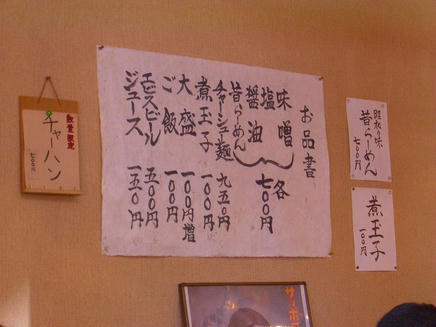 お品書
味噌
塩
醤油
各七〇〇円
昔らーめん
チャーシュー麺 九五〇円
煮玉子 一〇〇円
大盛 一〇〇円増
ご飯 一〇〇円
ヱビスビール 五〇〇円
ジュース 一五〇円
昔らーめん
七〇〇円
煮玉子
一〇〇円
数量限定
チャーハン
七〇〇円
サッポロ